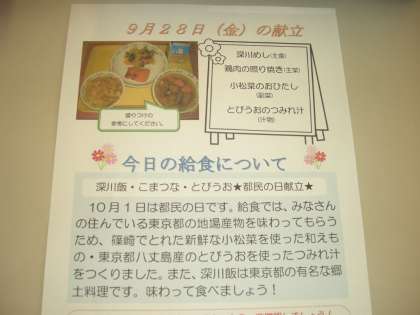 9月28日（金）の献立
深川めし(主食)
鶏肉の照り焼き(主菜)
小松菜のおひたし
(副菜)
とびうおのつみれ汁
(汁物)
盛りつけの
参考にしてください。
今日の給食について
深川飯・こまつな・とびうお★都民の日献立★
10月1日は都民の日です。給食では、みなさん
の住んでいる東京都の地場産物を味わってもらう
ため、篠崎でとれた新鮮な小松菜を使った和えも
の・東京都八丈島産のとびうおを使ったつみれ汁
をつくりました。また、深川飯は東京都の有名な郷
土料理です。味わって食べましょう！